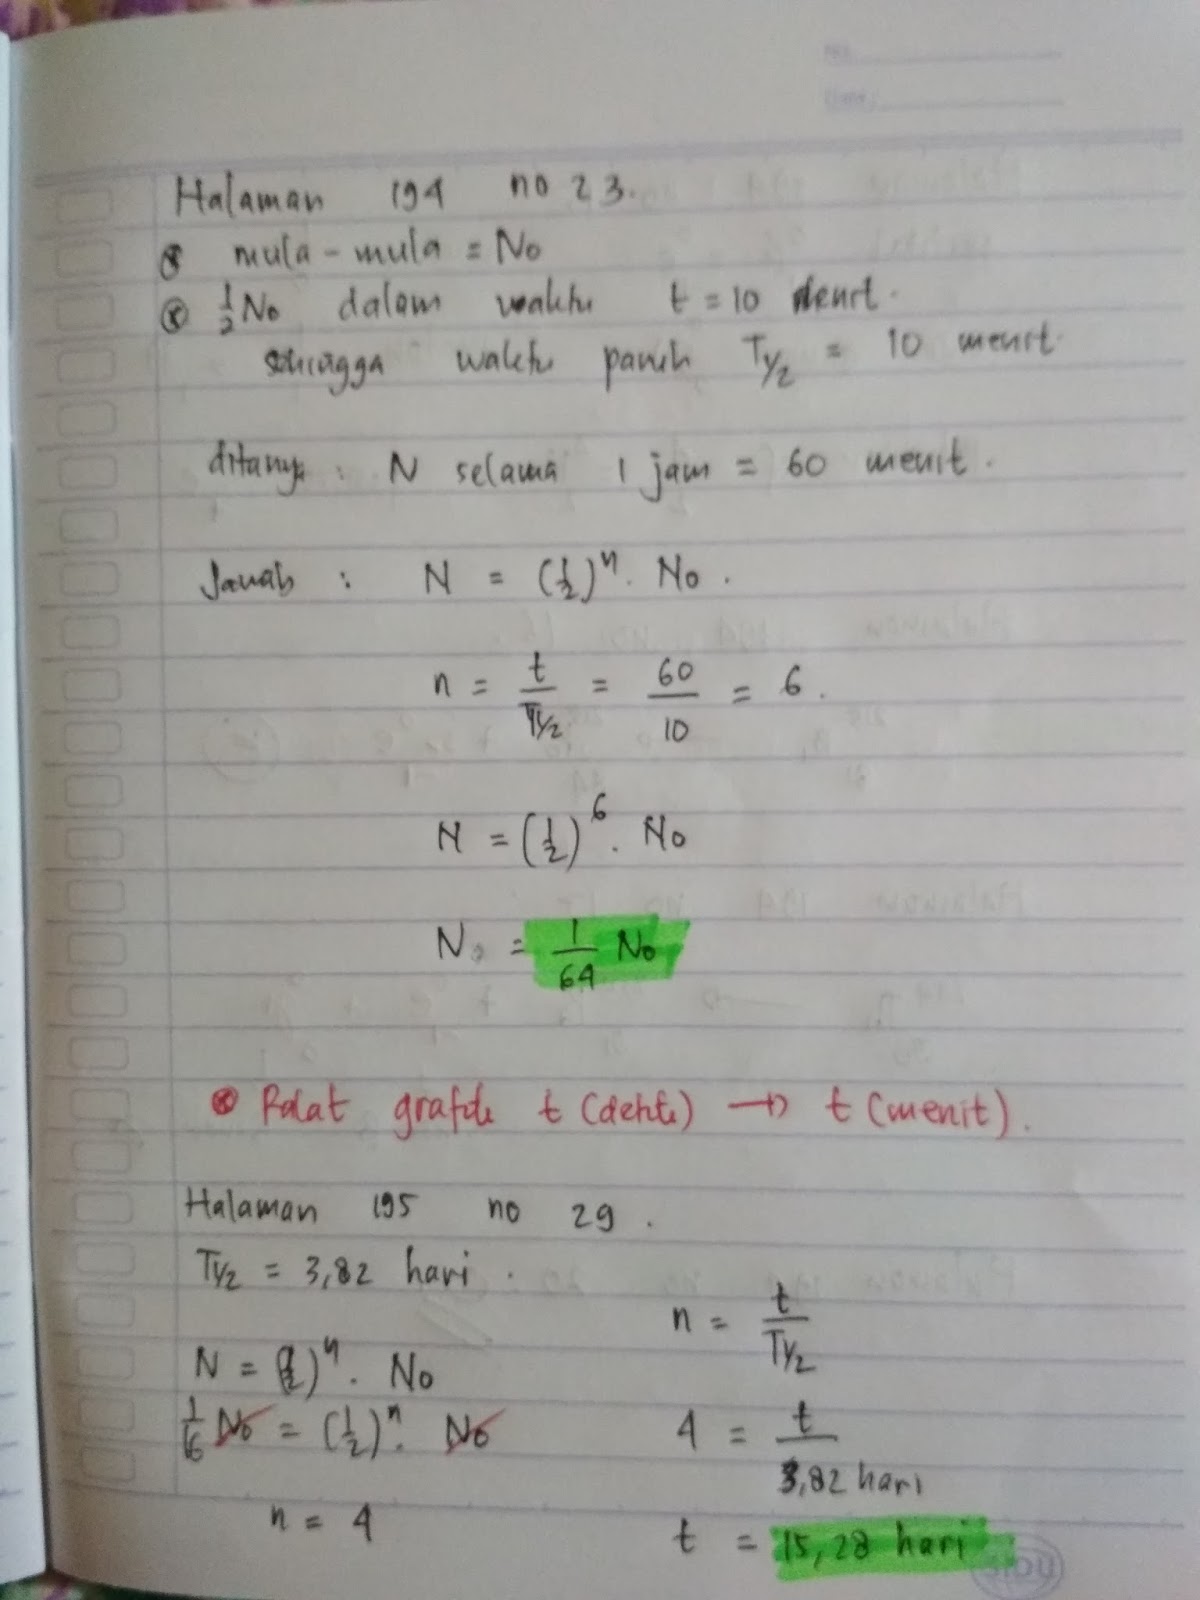 Halaman 194 no 23.
⊗ mula-mula = No
⊗ 1/2 No dalam waktu t = 10 menit.
sehingga waktu paruh T1/2 = 10 menit.
ditanya : N selama 1 jam = 60 menit.
Jawab : N = (1/2)^n . No.
n = t/T1/2 = 60/10 = 6.
N = (1/2)^6 . No
N = 1/64 No
⊗ Ralat grafik t (detik) → t (menit).
Halaman 195 no 29.
T1/2 = 3,82 hari.
N = (1/2)^n . No
1/16 No = (1/2)^n . No
n = 4
n = t/T1/2
4 = t/3,82 hari
t = 15,28 hari
SIDU